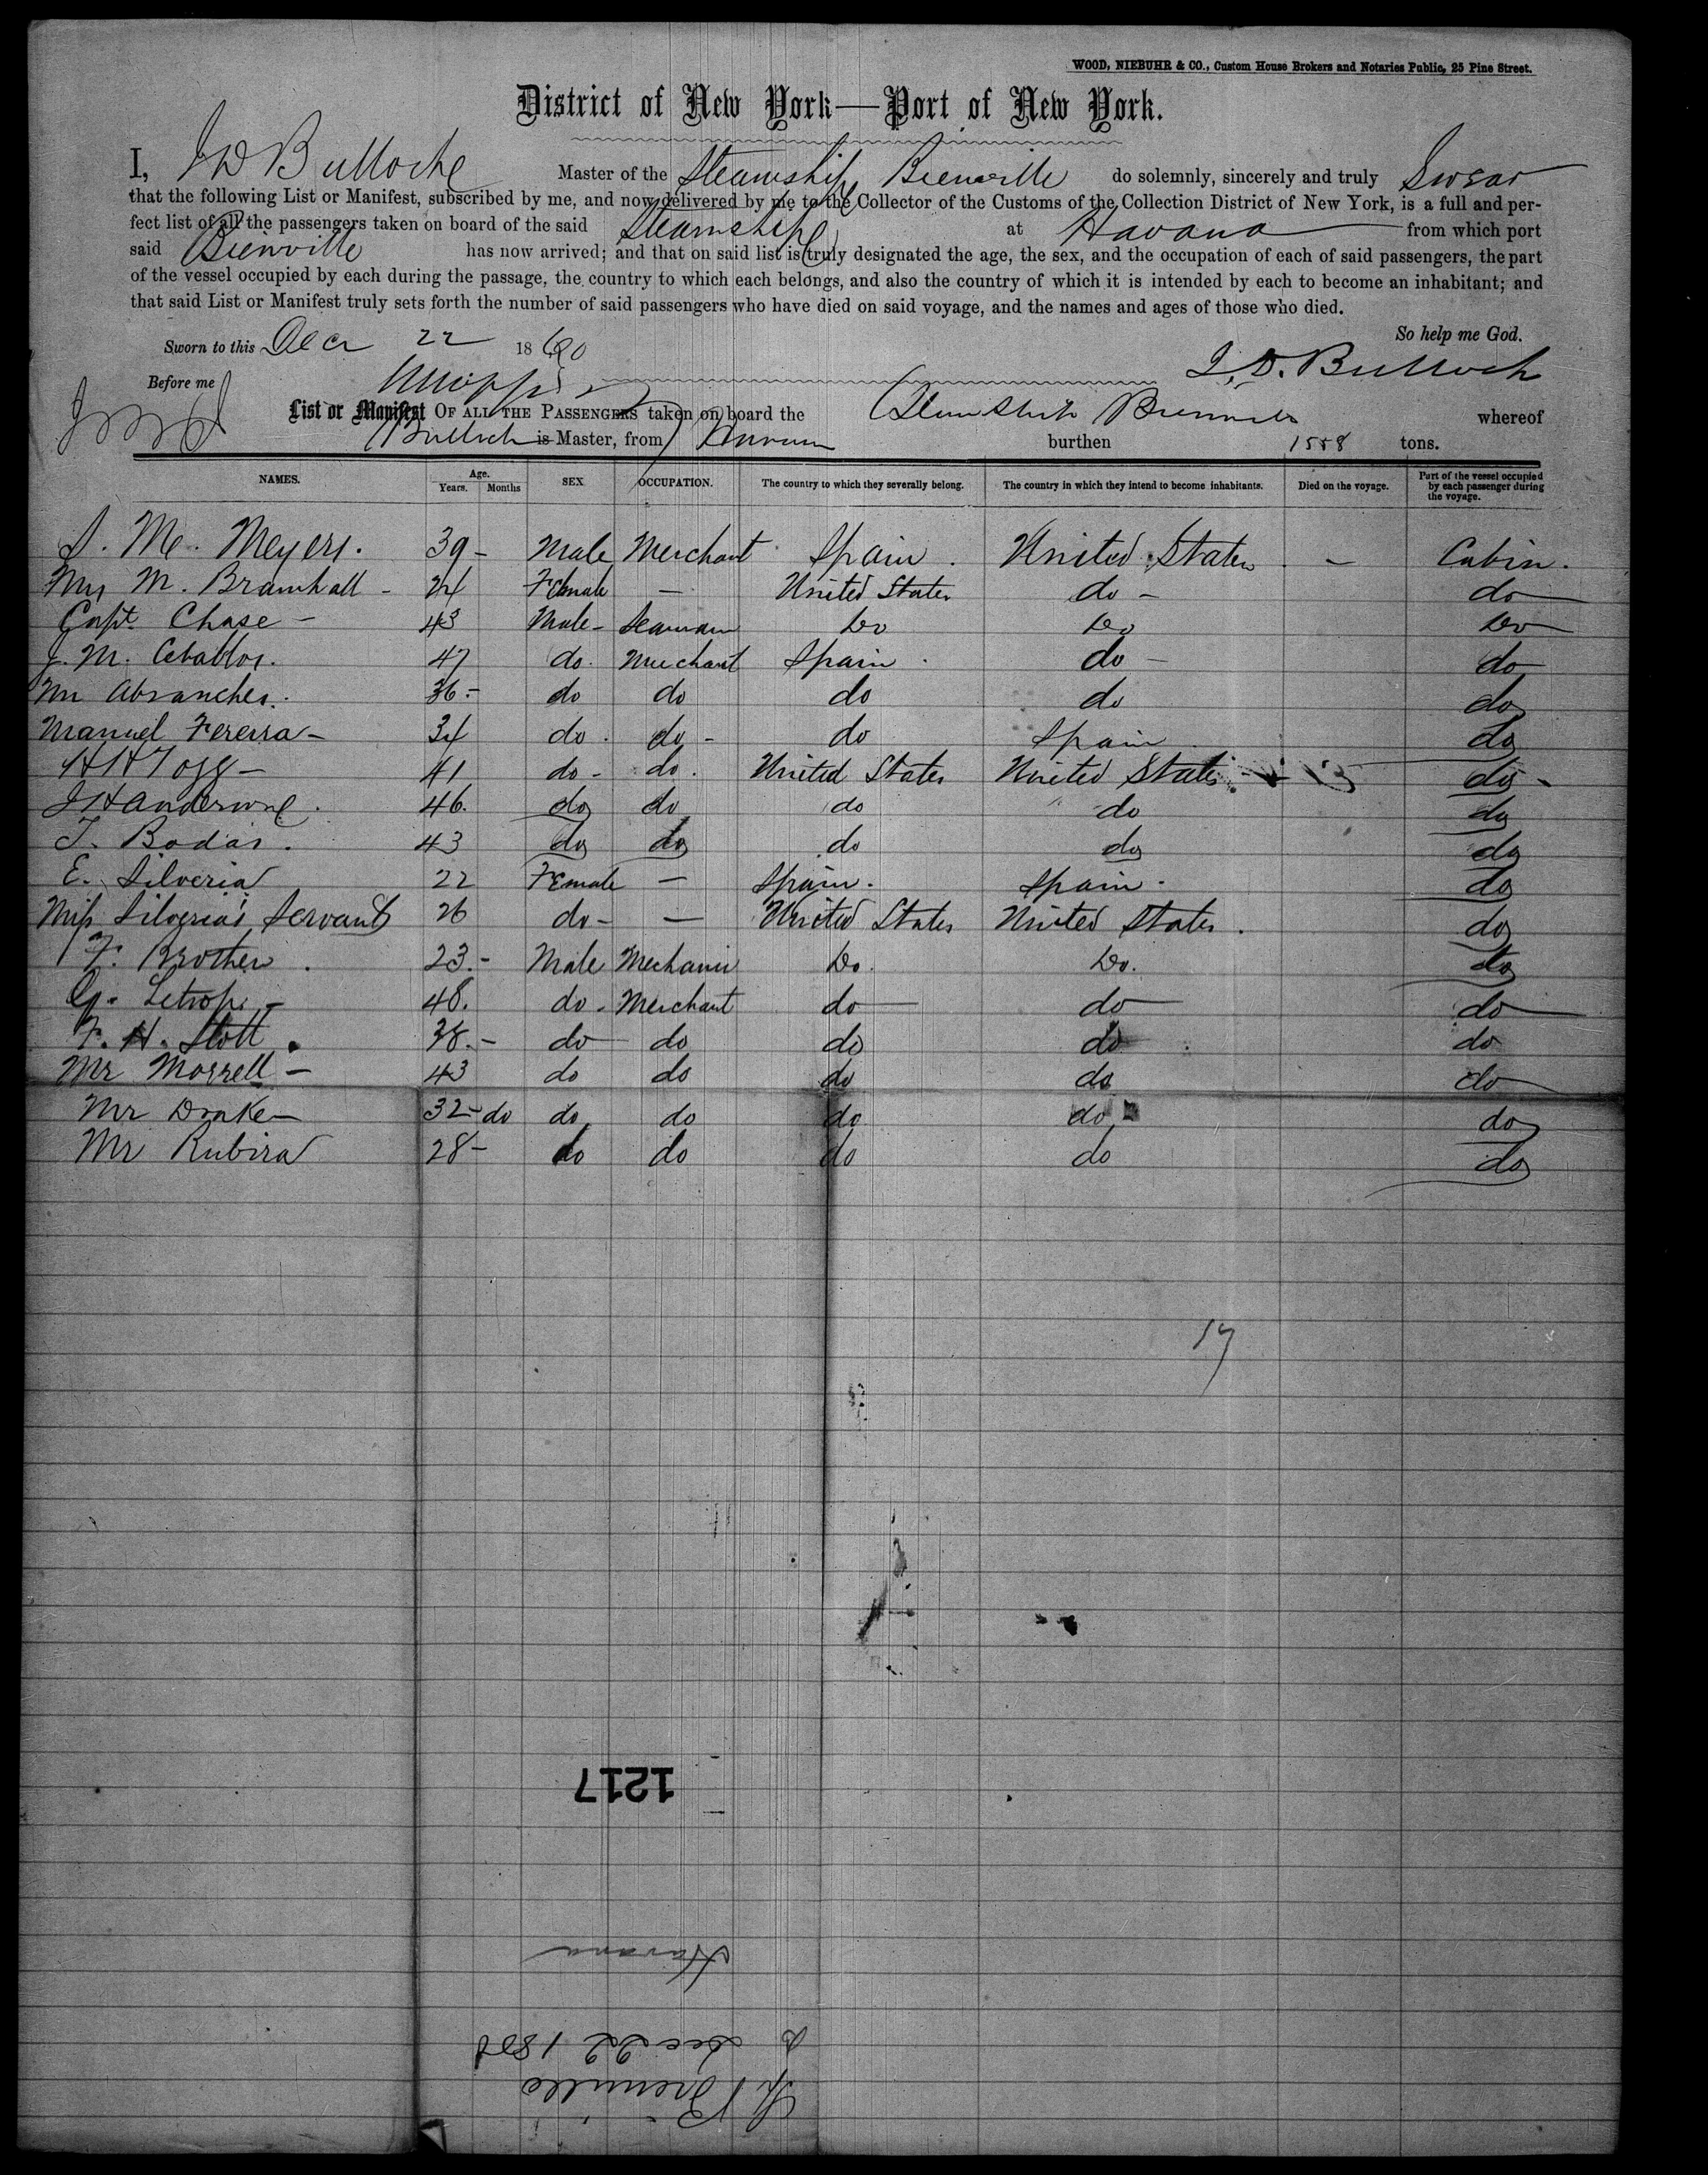 WOOD, NIEBUHR & CO., Custom House Brokers and Notaries Public, 25 Pine Street.
District of New York—Port of New York.
I, J D Bulloch Master of the Steamship Bienville do solemnly, sincerely and truly Swear
that the following List or Manifest, subscribed by me, and now delivered by me to the Collector of the Customs of the Collection District of New York, is a full and per-
fect list of all the passengers taken on board of the said Steamship at Havana from which port
said Bienville has now arrived; and that on said list is truly designated the age, the sex, and the occupation of each of said passengers, the part
of the vessel occupied by each during the passage, the country to which each belongs, and also the country of which it is intended by each to become an inhabitant; and
that said List or Manifest truly sets forth the number of said passengers who have died on said voyage, and the names and ages of those who died.
So help me God.
Sworn to this Decr 22 1860
J. D. Bulloch
Before me
List or Manifest OF ALL THE PASSENGERS taken on board the Steamship Bienville whereof
Bulloch is Master, from Havana burthen 1558 tons.
NAMES. Age. Years. Months SEX OCCUPATION. The country to which they severally belong. The country in which they intend to become inhabitants. Died on the voyage. Part of the vessel occupied by each passenger during the voyage.
S. M. Meyers. 39 - Male Merchant Spain. United States - Cabin.
Mrs M. Bramhall - 24 Female — United States do - do
Capt. Chase - 43 Male - Seaman Do Do Do
J. M. Cballos. 47 do. Merchant Spain. do - do
Mr Abranches. 36 - do do do do do
Manuel Fererra - 34 do. do - do Spain do
H H Togg - 41 do - do. United States United States do -
J H Anderson 46. do do do do do
T. Bodas. 43 do do do do do
E. Silveria 22 Female — Spain. Spain. do
Miss Silveria's Servant 26 do - — United States United States. do
F. Brother. 23. - Male Mechanic Do. Do. do
G. 48. do - Merchant do do do
F. H. Stott. 38. - do do do do do
Mr Morrell - 43 do do do do do
Mr Drake - 32 - do do do do do do
Mr Rubira 28 - do do do do do
17
1217
Havana
Dec 22 1860
Bienville